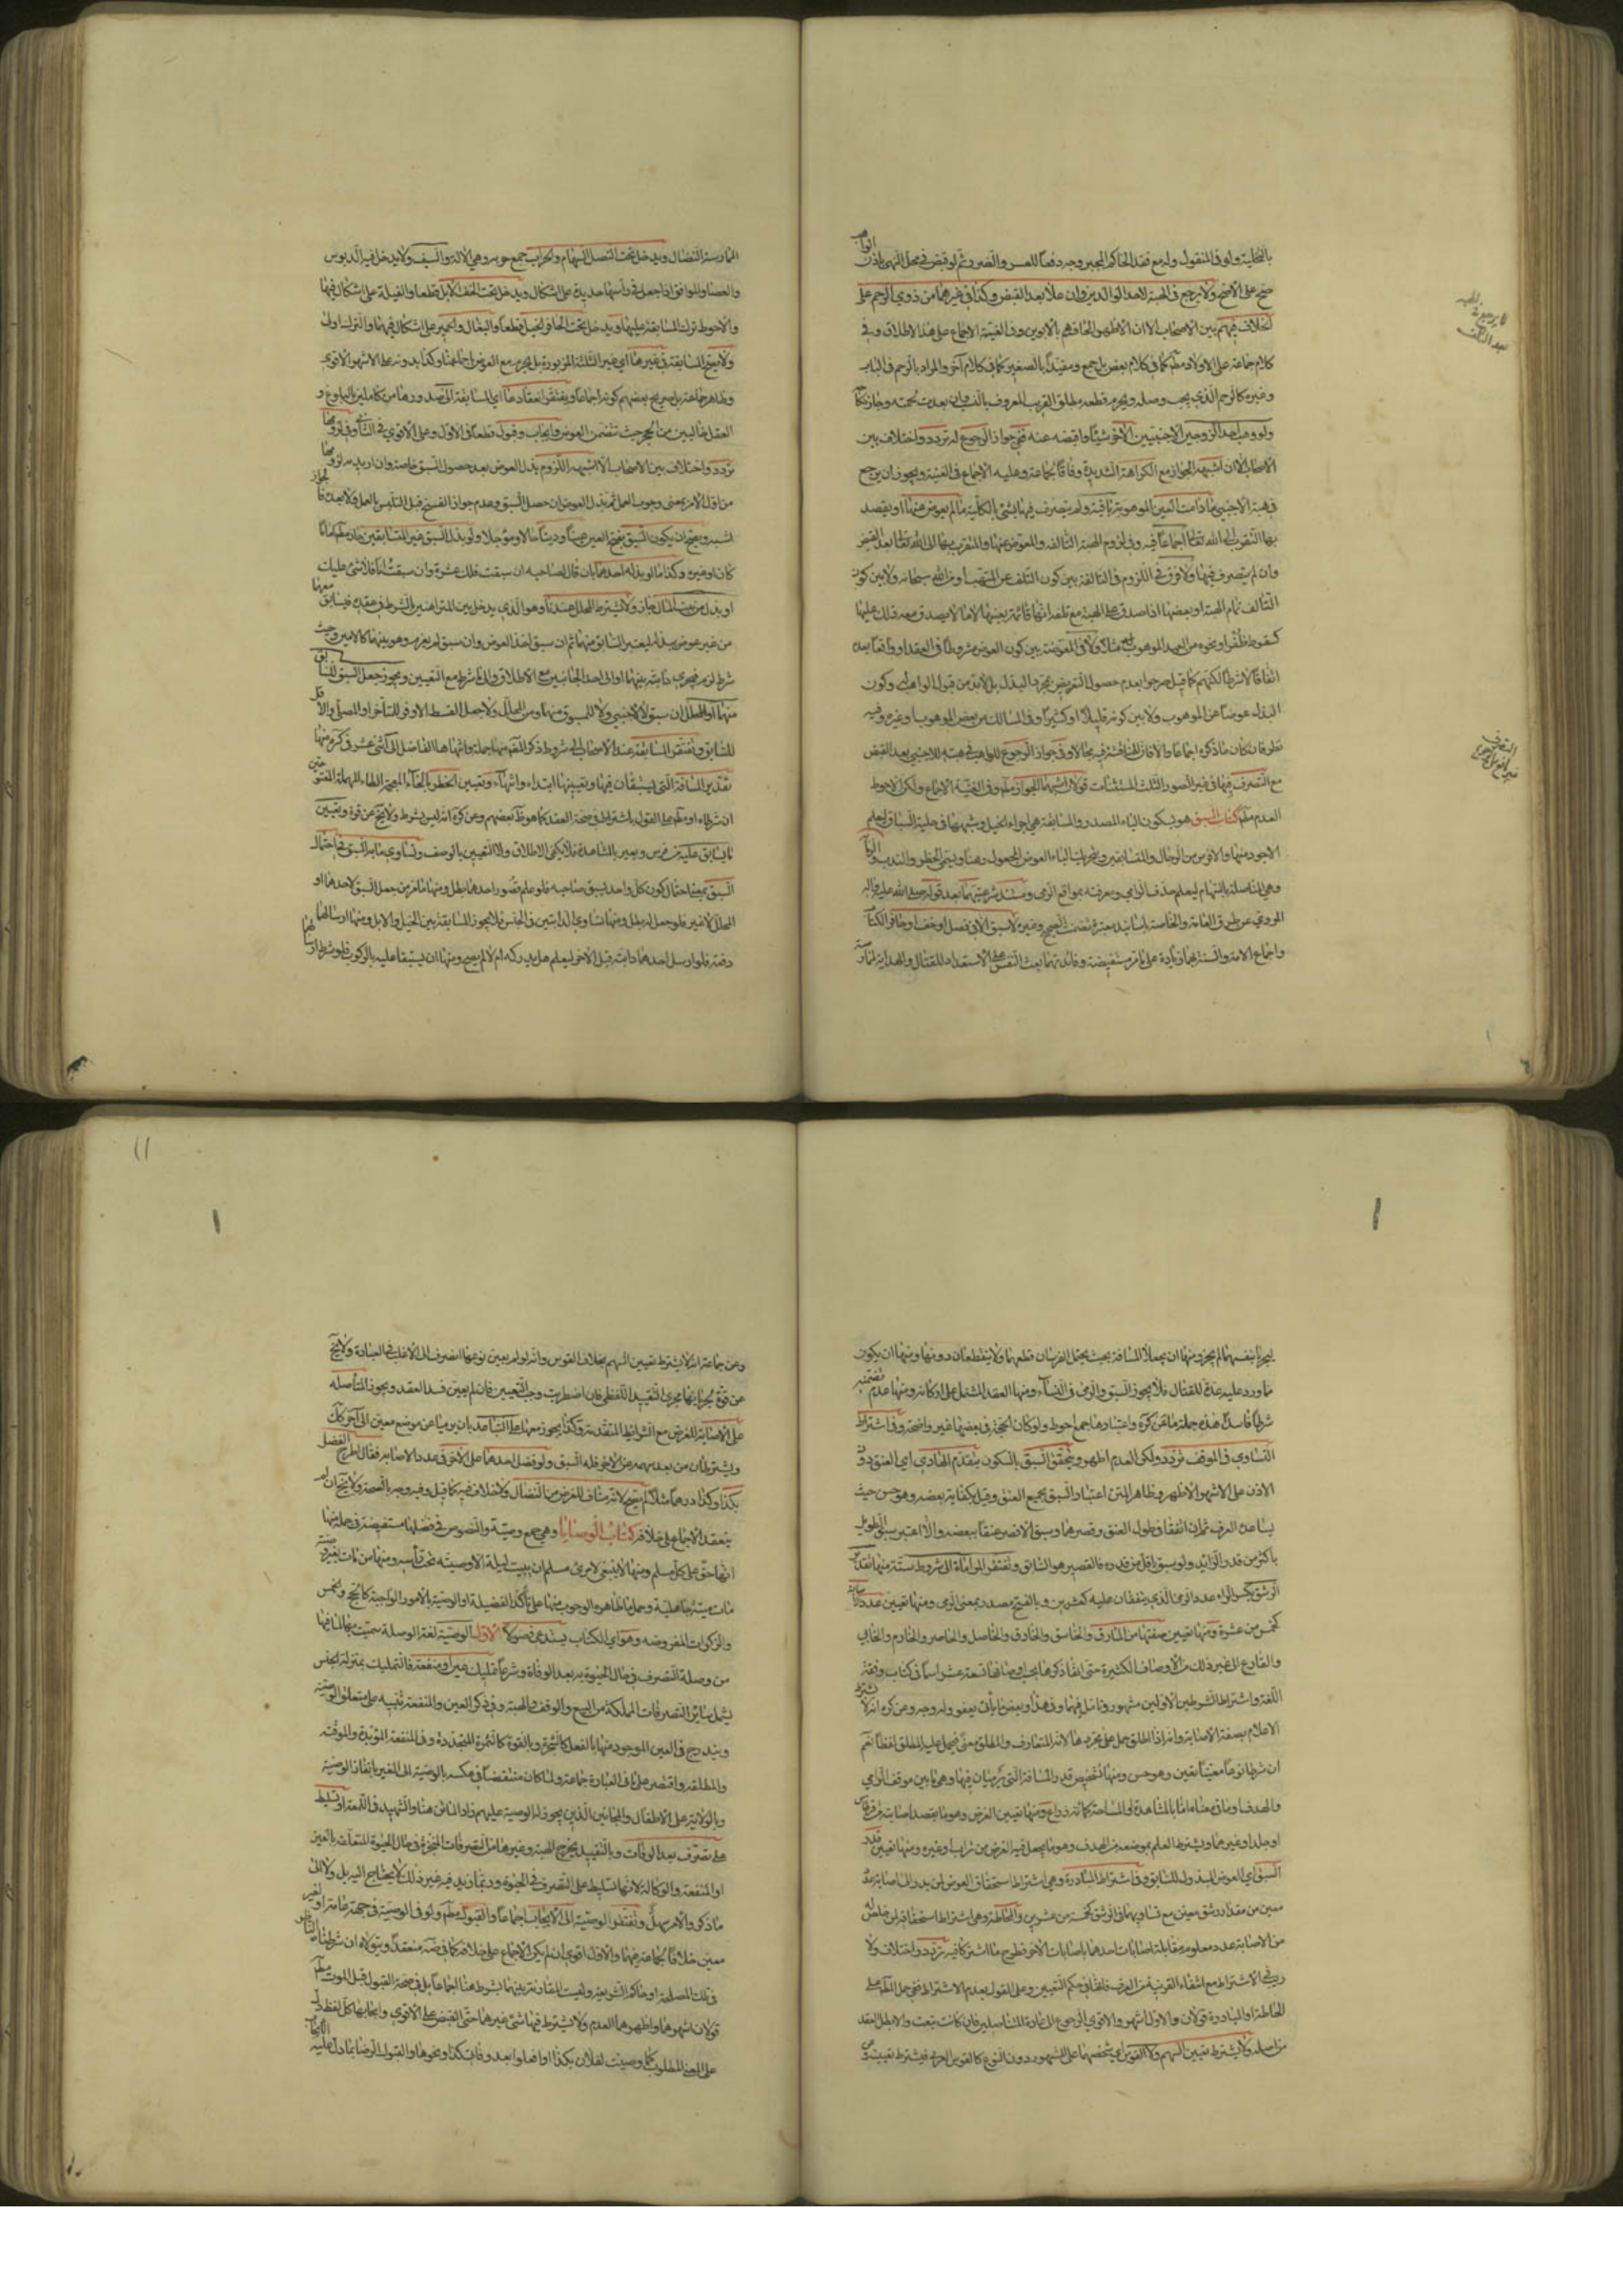 بالتخلية ولو في المنقول وله مع فقد الحاكم المجبر وجه دفعا للعسر والضرر ثم لو قبض في محل النهي باذن الواهب
صح على الاصح ولا يرجع في الهبة لاحد الوالدين وان علا بعد القبض وكذا في غيرهما من ذوي الرحم على
الخلاف فيهم بين الاصحاب الا ان الاظهر الحاقهم بالابوين وفي الغنية الاجماع على هذا الاطلاق وفي
كلام جماعة على الاولاد مطلقا كما في كلام بعض بل جمع ومقيدا بالصغير كما في كلام آخر والمراد بالرحم في الباب
وغيره كالرحم الذي يجب وصله ويحرم قطعه مطلق القريب المعروف بالنسب وان بعدت لحمته وجاز نكاحه
ولو وهب احد الزوجين الاجنبيين الآخر شيئا واقبضه عنه ففي جواز الرجوع له تردد واختلاف بين
الاصحاب الا ان اشبهه الجواز مع الكراهة الشديدة وفاقا لجماعة وعليه الاجماع في الغنية ويجوز ان يرجع
في هبة الاجنبي ما دامت العين الموهوبة باقية ولم يتصرف فيها بشئ بالكلية ما لم يعوض عنها او يقصد
بها التقرب الى الله تعالى اجماعا فيه وفي لزوم الهبة التالفة والمعوض عنها والمتقرب بها الى الله تعالى بعد القبض
وان لم يتصرف فيها ولا فرق في اللزوم في التالفة بين كون التلف من المتهب او من الله سبحانه ولا بين كون
التالف تمام الهبة او بعضها اذا صدق على الهبة مع تلفه انها قائمة بعينها لا ما لا يصدق معه ذلك عليها
كسقوط ظفر او نحوه من العبد الموهوب له مثلا ولا في المعوضة بين كون العوض مشروطا في العقد او واقعا بعده
اتفاقا لا شرطا لكنهم كما قيل صرحوا بعدم حصول التعويض بمجرد البذل بل لابد من قبول الواهب له وكون
البذل عوضا عن الموهوب ولا بين كونه قليلا او كثيرا وفي المسالك من بعض الموهوب او غيره وفيه
مع التصرف فيها في غير الصور الثلث المستثنات قولان اشبههما الجواز مطلقا وفي الغنية الاجماع ولكن الاحوط
العدم مطلقا كتاب السبق هو بسكون الباء المصدر والمسابقة هي اجراء الخيل وشبهها في حلبة السباق ليعلم
وهي المناضلة بالسهام ليعلم حذف الرامي ومعرفته بمواقع الرمي ومستند شرعيتهما بعد قوله صلى الله عليه واله
المروي عن طرق العامة والخاصة باسانيد معتبرة تضمنت الصحيح وغيره لا سبق الا في نصل او خف او حافر الكتاب
واجماع الامة والسنة بهما زيادة على ما مر مستفيضة وفائدتهما بعث النفس على الاستعداد للقتال والهداية لممارسة
لا يرجع في الهبة
بعد التلف
الممارسة النضال ويدخل تحت النصل السهام والحراب جمع حربة وهي الآلة والسيف ولا يدخل فيه الدبوس
والعصا والمرافق اذا جعل في رأسها حديدة على اشكال ويدخل تحت الخف الابل قطعا والفيلة على اشكال فيها
والاحوط ترك المسابقة عليها ويدخل تحت الحافر الخيل قطعا والبغال والحمير على اشكال فيهما والترك اولى
ولا يصح المسابقة في غيرها اي غير الثلثة المزبورة بل يحرم مع العوض اجماعا وكذا بدونه على الاشهر الاقوى
وظاهر جماعة بل صريح بعضهم كونه اجماعا ويفتقر انعقادها اي المسابقة الى صدورها من كاملين بالبلوغ و
العقل خاليين من الحجر حيث تتضمن العوض وايجاب وقبول قطعا في الاول وعلى الاقوى في الثاني وفي لزومها
تردد واختلاف بين الاصحاب الا ان اشبهه اللزوم بذل العوض بعد حصول السبق خاصة وان اريد به لزومها
من اول الامر بمعنى وجوب العمل ثم بذل العوض ان حصل السبق وعدم جواز الفسخ قبل التلبس بالعمل ولا بعده فالجواز
اشبه ويصح ان يكون السبق بفتح العين عينا ودينا حالا ومؤجلا ولو بذل السبق غير المتسابقين جاز مطلقا اماما
كان او غيره وكذا ما لو بذله احدهما بان قال لصاحبه ان سبقت فلك عشرة وان سبقت انا فلا شئ عليك
او بذل من بيت المال جاز ولا يشترط المحلل عندنا وهو الذي يدخل بين المتراهنين بالشرط في عقده فيتسابق معهما
من غير عوض يبذله ليعتبر السابق منهما ثم ان سبق اخذ العوض وان سبق لم يغرم وهو بينهما كالامين وحيث
شرط لزم فيجري دابته بينهما او الى احد الجانبين مع الاطلاق والى ما شرط مع التعيين ويجوز جعل السبق للسابق
منهما او للمحلل ان سبق لا لاجنبي ولا للمسبوق منهما ومن المحلل ولا جعل القسط الاوفر للمتأخر او المصلي والاقل
للسابق وتفتقر المسابقة عند الاصحاب الى شروط ذكر المصنف منها جملة وانهاها الفاضل الى اثنى عشر في كره منها
تقدير المسافة التي يستبقان فيها وتعيينها ابتداء وانتهاء وتعيين الخطر بالخاء المعجمة والطاء المهملة المفتوحتين
ان شرطاه او مطلقا على القول باشتراطه في صحة العقد كما هو ظاهر بعضهم وعن كره انه ليس بشرط ولا يخلو عن قوة وتعيين
ما يسابق عليه من فرس وبعير بالمشاهدة فلا يكفي الاطلاق ولا التعيين بالوصف وتساوي ما به السبق في احتمال
السبق بمعنى احتمال كون كل واحد يسبق صاحبه فلو علم قصور احدهما بطل ومنها ما مر من جعل السبق لاحدهما او
المحلل لا غير فلو جعل لغيرهم بطل ومنها تساوي الدابتين في الجنس فلا يجوز المسابقة بين الخيل والابل ومنها ارسالهما
دفعة فلو ارسل احدهما دابته قبل الآخر ليعلم هل يدركه ام لا لم يصح ومنها ان يستبقا عليه بالركوب فلو شرط ارسالهما
ليجريا بنفسهما لم يجز ومنها ان يجعلا المسافة بحيث يحتمل الفرسان قطعها ولا ينقطعان دونها ومنها ان يكون
ما ورد عليه عدة للقتال فلا يجوز السبق والرمي في النساء ومنها العقد المشتمل على اركانه ومنها عدم تضمنه
شرطا فاسدا هذه جملة ما عن كره واعتبارها اجمع احوط ولو كان الحجة في بعضها غير واضحة وفي اشتراط
التساوي في الموقف تردد ولكن العدم اظهر ويتحقق السبق بالسكون بتقدم الهادي اي العنق دون
الاذن على الاشهر الاظهر وظاهر المتن اعتبار السبق بجميع العنق وقيل بكفاية بعضه وهو حسن حيث
يساعده العرف ثم ان اتفقا في طول العنق وقصرهما وسبق الاقصر عنقا ببعضه والا اعتبر سبق الطويل
باكثر من قدر الزائد ولو سبق باقل من قدره فالقصير هو السابق وتفتقر المراماة الى شروط ستة منها تقدير
الرشق بكسر الراء عدد الرمي الذي يتفقان عليه كعشرين وبالفتح مصدر بمعنى الرمي ومنها تعيين عدد الاصابة
كخمس من عشرة ومنها تعيين صفتها من المارق والخاسق والخازق والخاصل والحاصر والخارم والحابي
والقارع الى غير ذلك من الاوصاف الكثيرة حتى انها ذكروها
اللغة واشتراط الشرطين الاولين مشهور وتأمل فيهما وفي هذا وبعض ما يأتي بعض وله وجه وعن كره انه لا يشترط
الاعلام بصفة الاصابة وانه اذا اطلق حمل على مجردها لانه المتعارف والمطلق معنى فيحمل عليه المطلق لفظا نعم
ان شرطا نوعا معينا تعين وهو حسن ومنها تشخيص قدر المسافة التي يرميان فيها وهو ما بين موقف الرامي
والهدف او ما في معناه اما بالمشاهدة او المساحة كمائة ذراع ومنها تعيين الغرض وهو ما يقصد اصابته من قرطاس
او جلد او غيرهما ويشترط العلم بموضعه من الهدف وهو ما يجعل فيه الغرض من تراب وغيره ومنها تعيين قدر
السبق اي العوض المبذول للسابق وفي اشتراط المبادرة وهي اشتراط استحقاق العوض لمن بدر الى اصابة عدد
معين من مقدار رشق معين مع تساويهما في الرشق كخمسة من عشرين والمحاطة وهي اشتراط استحقاقه لمن خلص له
من الاصابة عدد معلوم بعد مقابلة اصابات احدهما باصابات الآخر وطرح ما اشتركا فيه تردد واختلاف ولا
ريب في الاشتراط مع انتفاء القرينة من العرف فانها في حكم التعيين وعلى القول بعدم الاشتراط ففي حمل المطلق على
المحاطة او المبادرة قولان والاول اشهر والاقوى الرجوع الى عادة المتناضلين فان كانت تبعت والا بطل العقد
من اصله ولا يشترط تعيين السهم ولا القوس اي شخصهما على المشهور دون النوع كالقوس العربي فيشترط تعيينه
وعن جماعة انه لا يشترط تعيين السهم بخلاف القوس وانه لو لم يعين نوعها انصرف الى الاغلب في العادة ولا يخلو
عن قوة لجريانها مجرى التقييد اللفظي فان اضطربت وجب التعيين فان لم يعين فسد العقد ويجوز المناضلة
على الاصابة للغرض مع الشرائط المتقدمة وكذا يجوز معها على التباعد بان يرميا عن موضع معين الى آخر كذلك
ويشترطان من بعد سهمه عن الآخر فله السبق ولو فضل احدهما على الآخر في عدد الاصابة فقال اطرح الفضل
بكذا وكذا درهما مثلا لم يصح لانه مناف للغرض من النضال ولا خلاف فيه كما قيل وفيه وجه بالصحة ولا يخلو ان لم
ينعقد الاجماع على خلافه كتاب الوصايا وهي جمع وصية والنصوص في فضلها مستفيضة في جملة منها
انها حق على كل مسلم ومنها لا ينبغي لامرئ مسلم ان يبيت ليلة الا ووصيته تحت رأسه ومنها من مات بغير وصية
مات ميتة جاهلية وحمل ما ظاهره الوجوب منها على تأكد الفضيلة او الوصية بالامور الواجبة كالحج والخمس
والزكوات المفروضة وهو اي الكتاب يستدعي فصولا الاول الوصية لغة الوصلة سميت بها لما فيها
من وصلة التصرف في حال الحيوة به بعد الوفاة وشرعا تمليك عين او منفعة فالتمليك بمنزلة الجنس
يشمل سائر التصرفات المملكة من البيع والوقف والهبة وفي ذكر العين والمنفعة تنبيه على متعلق الوصية
ويندرج في العين الموجود منها بالفعل كالشجرة وبالقوة كالثمرة المتجددة وفي المنفعة المؤبدة والموقتة
والمطلقة واقتصر على ما في العبارة جماعة ولما كان منتقضا في عكسه بالوصية الى الغير بانفاذ الوصية
وبالولاية على الاطفال والمجانين الذين يجوز له الوصية عليهم زاد الماتن هنا والشهيد في اللمعة او تسليط
على تصرف بعد الوفات وبالتقييد يخرج الهبة وغيرها من التصرفات المنجزة في حال الحيوة المتعلقة بالعين
او المنفعة والوكالة لانها تسليط على التصرف في الحيوة وربما زيد فيه غير ذلك لا يحتاج اليه بل ولا الى
ما ذكر والامر سهل وتفتقر الوصية الى الايجاب اجماعا والقبول مطلقا ولو في الوصية في جهة عامة او لغير
معين خلافا لجماعة فيهما والاول اقوى ان لم يكن الاجماع على خلافه كما في ضه منعقدا ويتولاه ان شرطنا الناظر
في تلك المصلحة او حاكم الشريعة وليست المقارنة بينهما بشرط هنا اجماعا بل في صحة القبول قبل الموت مطلقا
قولان اشهرهما واظهرهما العدم ولا يشترط فيها شئ غيرهما حتى القبض على الاقوى وايجابها كل لفظ دل
على المعنى المطلوب كاوصيت لفلان بكذا او افعلوا بعد وفاتي كذا ونحوها والقبول الرضا بما دل عليه الايجاب